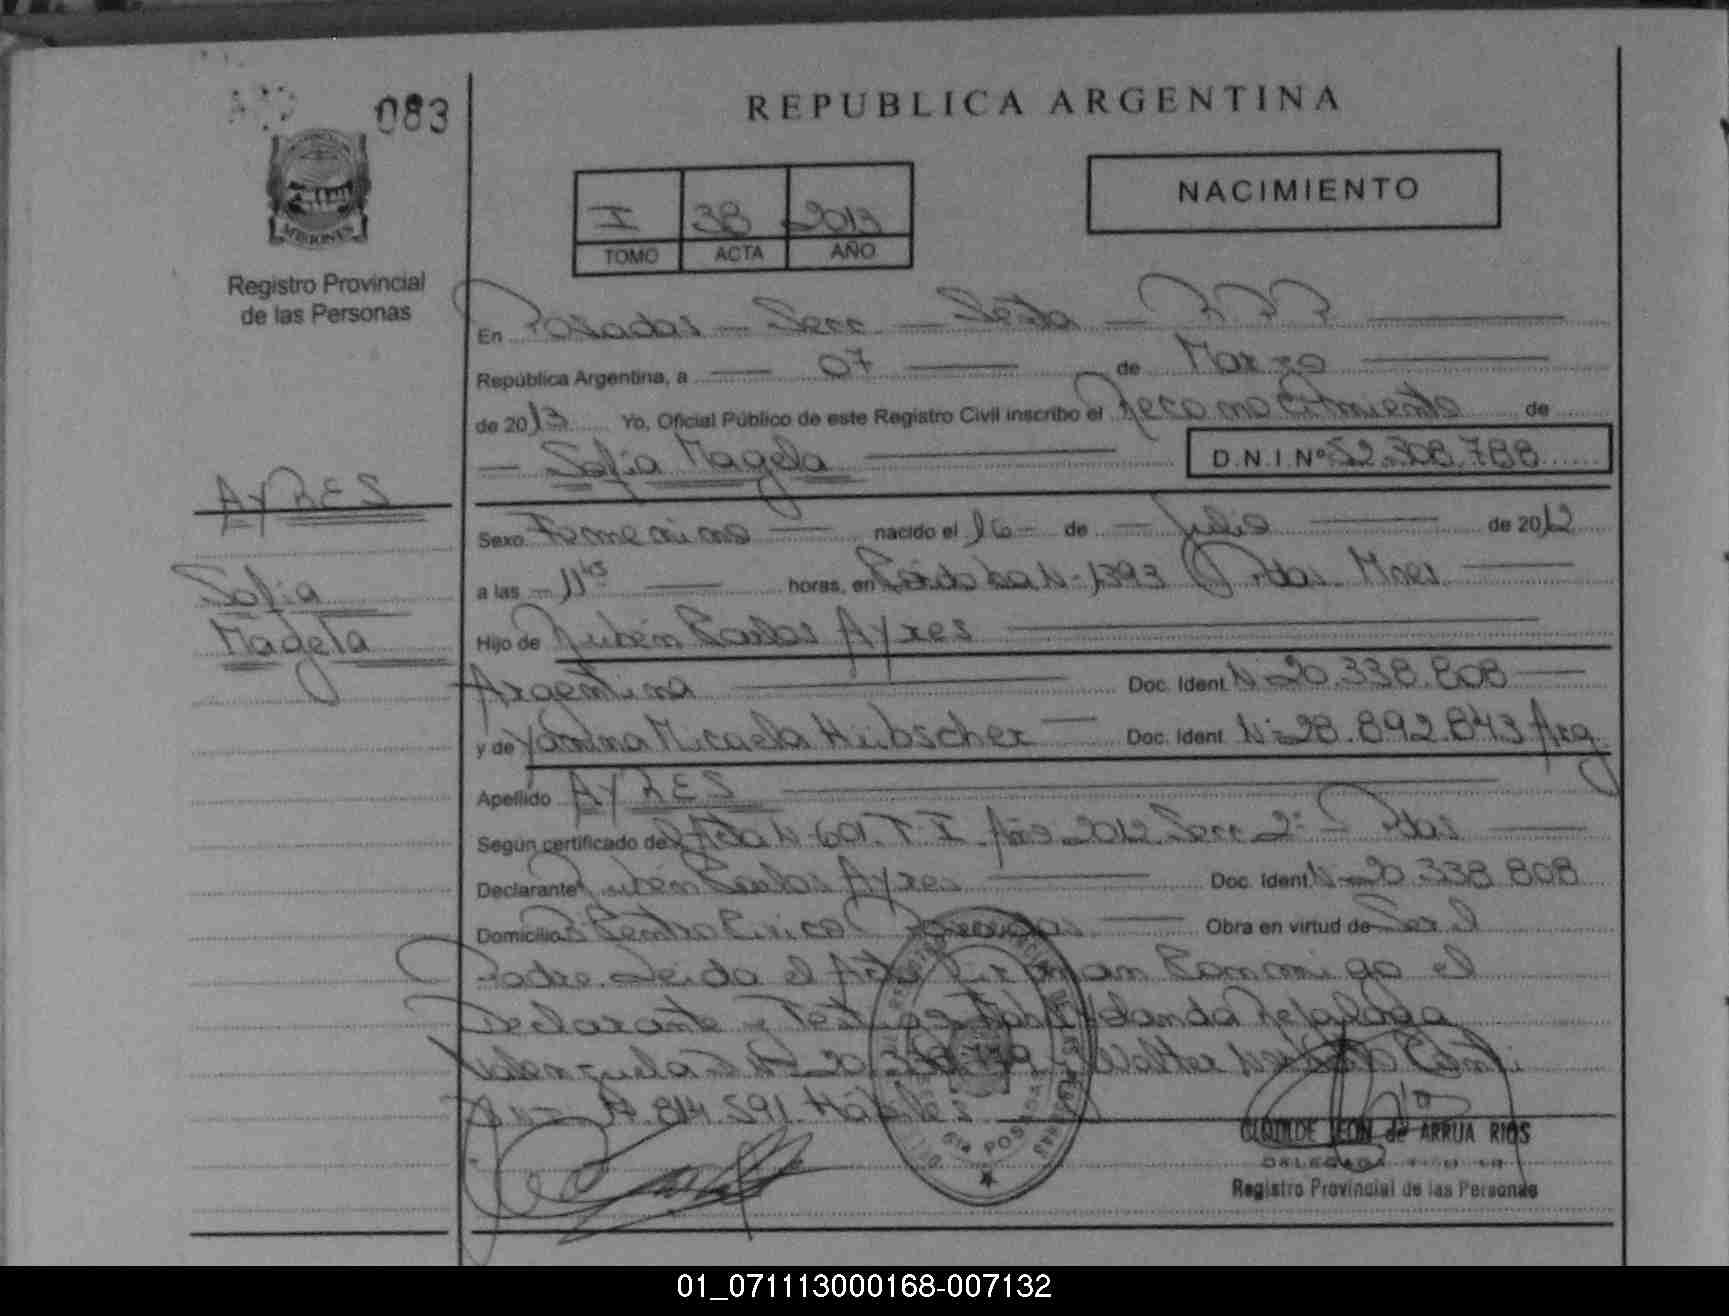 083
REPUBLICA ARGENTINA
MISIONES
Registro Provincial
de las Personas
I 38 2013
TOMO ACTA AÑO
NACIMIENTO
En Posadas - Secc - Sexta -
República Argentina, a 07 de Marzo
de 2013 Yo, Oficial Público de este Registro Civil inscribo el Reconocimiento de
Sofia Magela D.N.I. Nº 52.308.788
AYRES
Sofia
Magela
Sexo Femenino nacido el 16 de Julio de 2012
a las 11 45 horas, en Córdoba Nº 1393 Pdas. Mnes
Hijo de Rubén Carlos Ayres
Argentina Doc. Ident. Nº 20.338.808
y de Yanina Micaela Hübscher Doc. Ident. Nº 28.892.843 Arg.
Apellido AYRES
Según certificado de Acta Nº 601. T. I. Año 2012. Secc 2ª - Pdas
Declarante Rubén Carlos Ayres Doc. Ident. Nº 20.338.808
Domicilio Centro Civico Posadas Obra en virtud de Ser el
Padre. Leida el Acta Firman Conmigo el
Declarante y Testigos Yolanda
Valenzuela Walter
814.591. Hábiles
6ta POSADAS
CLOTILDE LEON de ARRUA RIOS
DELEGADA
Registro Provincial de las Personas
01_071113000168-007132